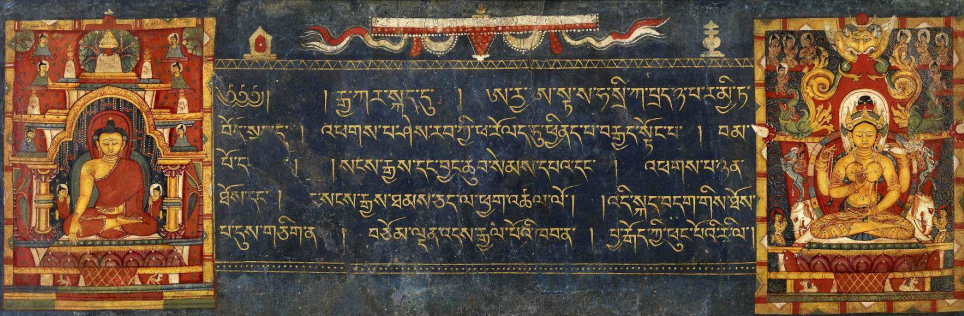 ༄༅༅། །རྒྱ་ཀར་སྐད་དུ་ །ཨརྱ་ཨ་སྟ་ས་ཧ་སྲི་ཀ་པྲད་ཉ་པ་རམྱི་ཏ
བོད་སྐད་ །འཕགས་པ་ཤེས་རབ་ཀྱི་ཕ་རོལད་ཏུ་ཕྱིནད་པ་བརྒྱད་སྟོང་པ་ །བམ་
པོ་ད །སངས་རྒྱས་དང་བྱང་ཆུབ་སེམས་དཔའ་དང་ །འཕགས་པ་ཉན་
ཐོས་དང་། ་སངས་རྒྱས་ཐམས་ཅད་ལ་ཕྱག་འཚལ་ལོ། །འདི་སྐད་བདག་གིས་ཐོས་
པ་དུས་གཅིག་ན །བཅོམ་ལྡན་འདས་རྒྱལ་པོའི་ཁབན་ །བྱ་རྒོད་ཀྱི་ཕུང་པོའི་རི་ལ།